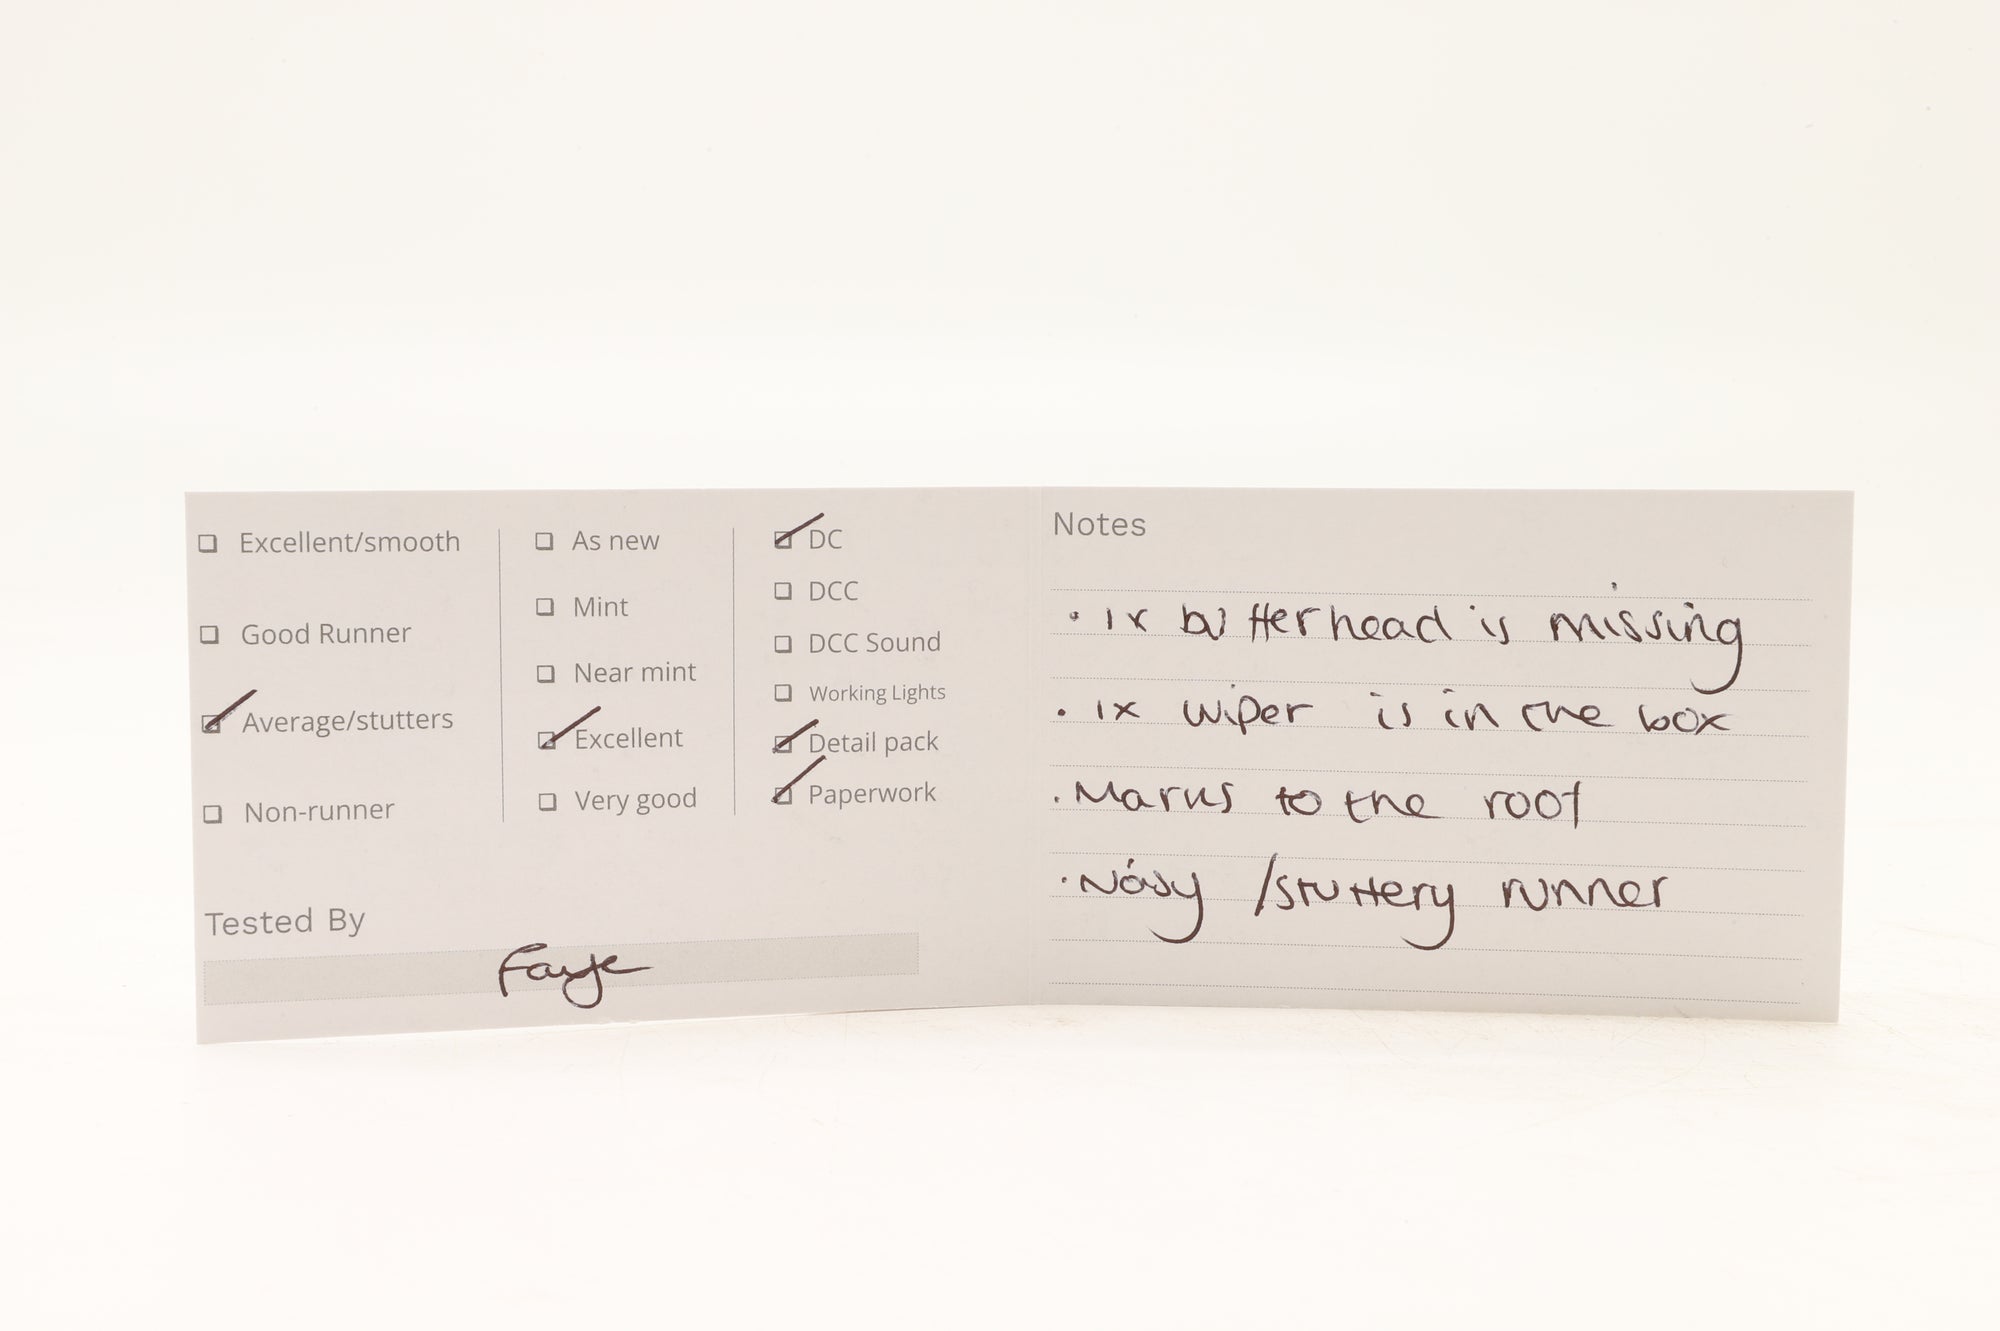 ☐ Excellent/smooth
☐ Good Runner
☑ Average/stutters
☐ Non-runner
☐ As new
☐ Mint
☐ Near mint
☑ Excellent
☐ Very good
☑ DC
☐ DCC
☐ DCC Sound
☐ Working Lights
☑ Detail pack
☑ Paperwork
Tested By
Faye
Notes
· 1x bufferhead is missing
· 1x wiper is in the box
· Marks to the roof
· Noisy /stuttery runner